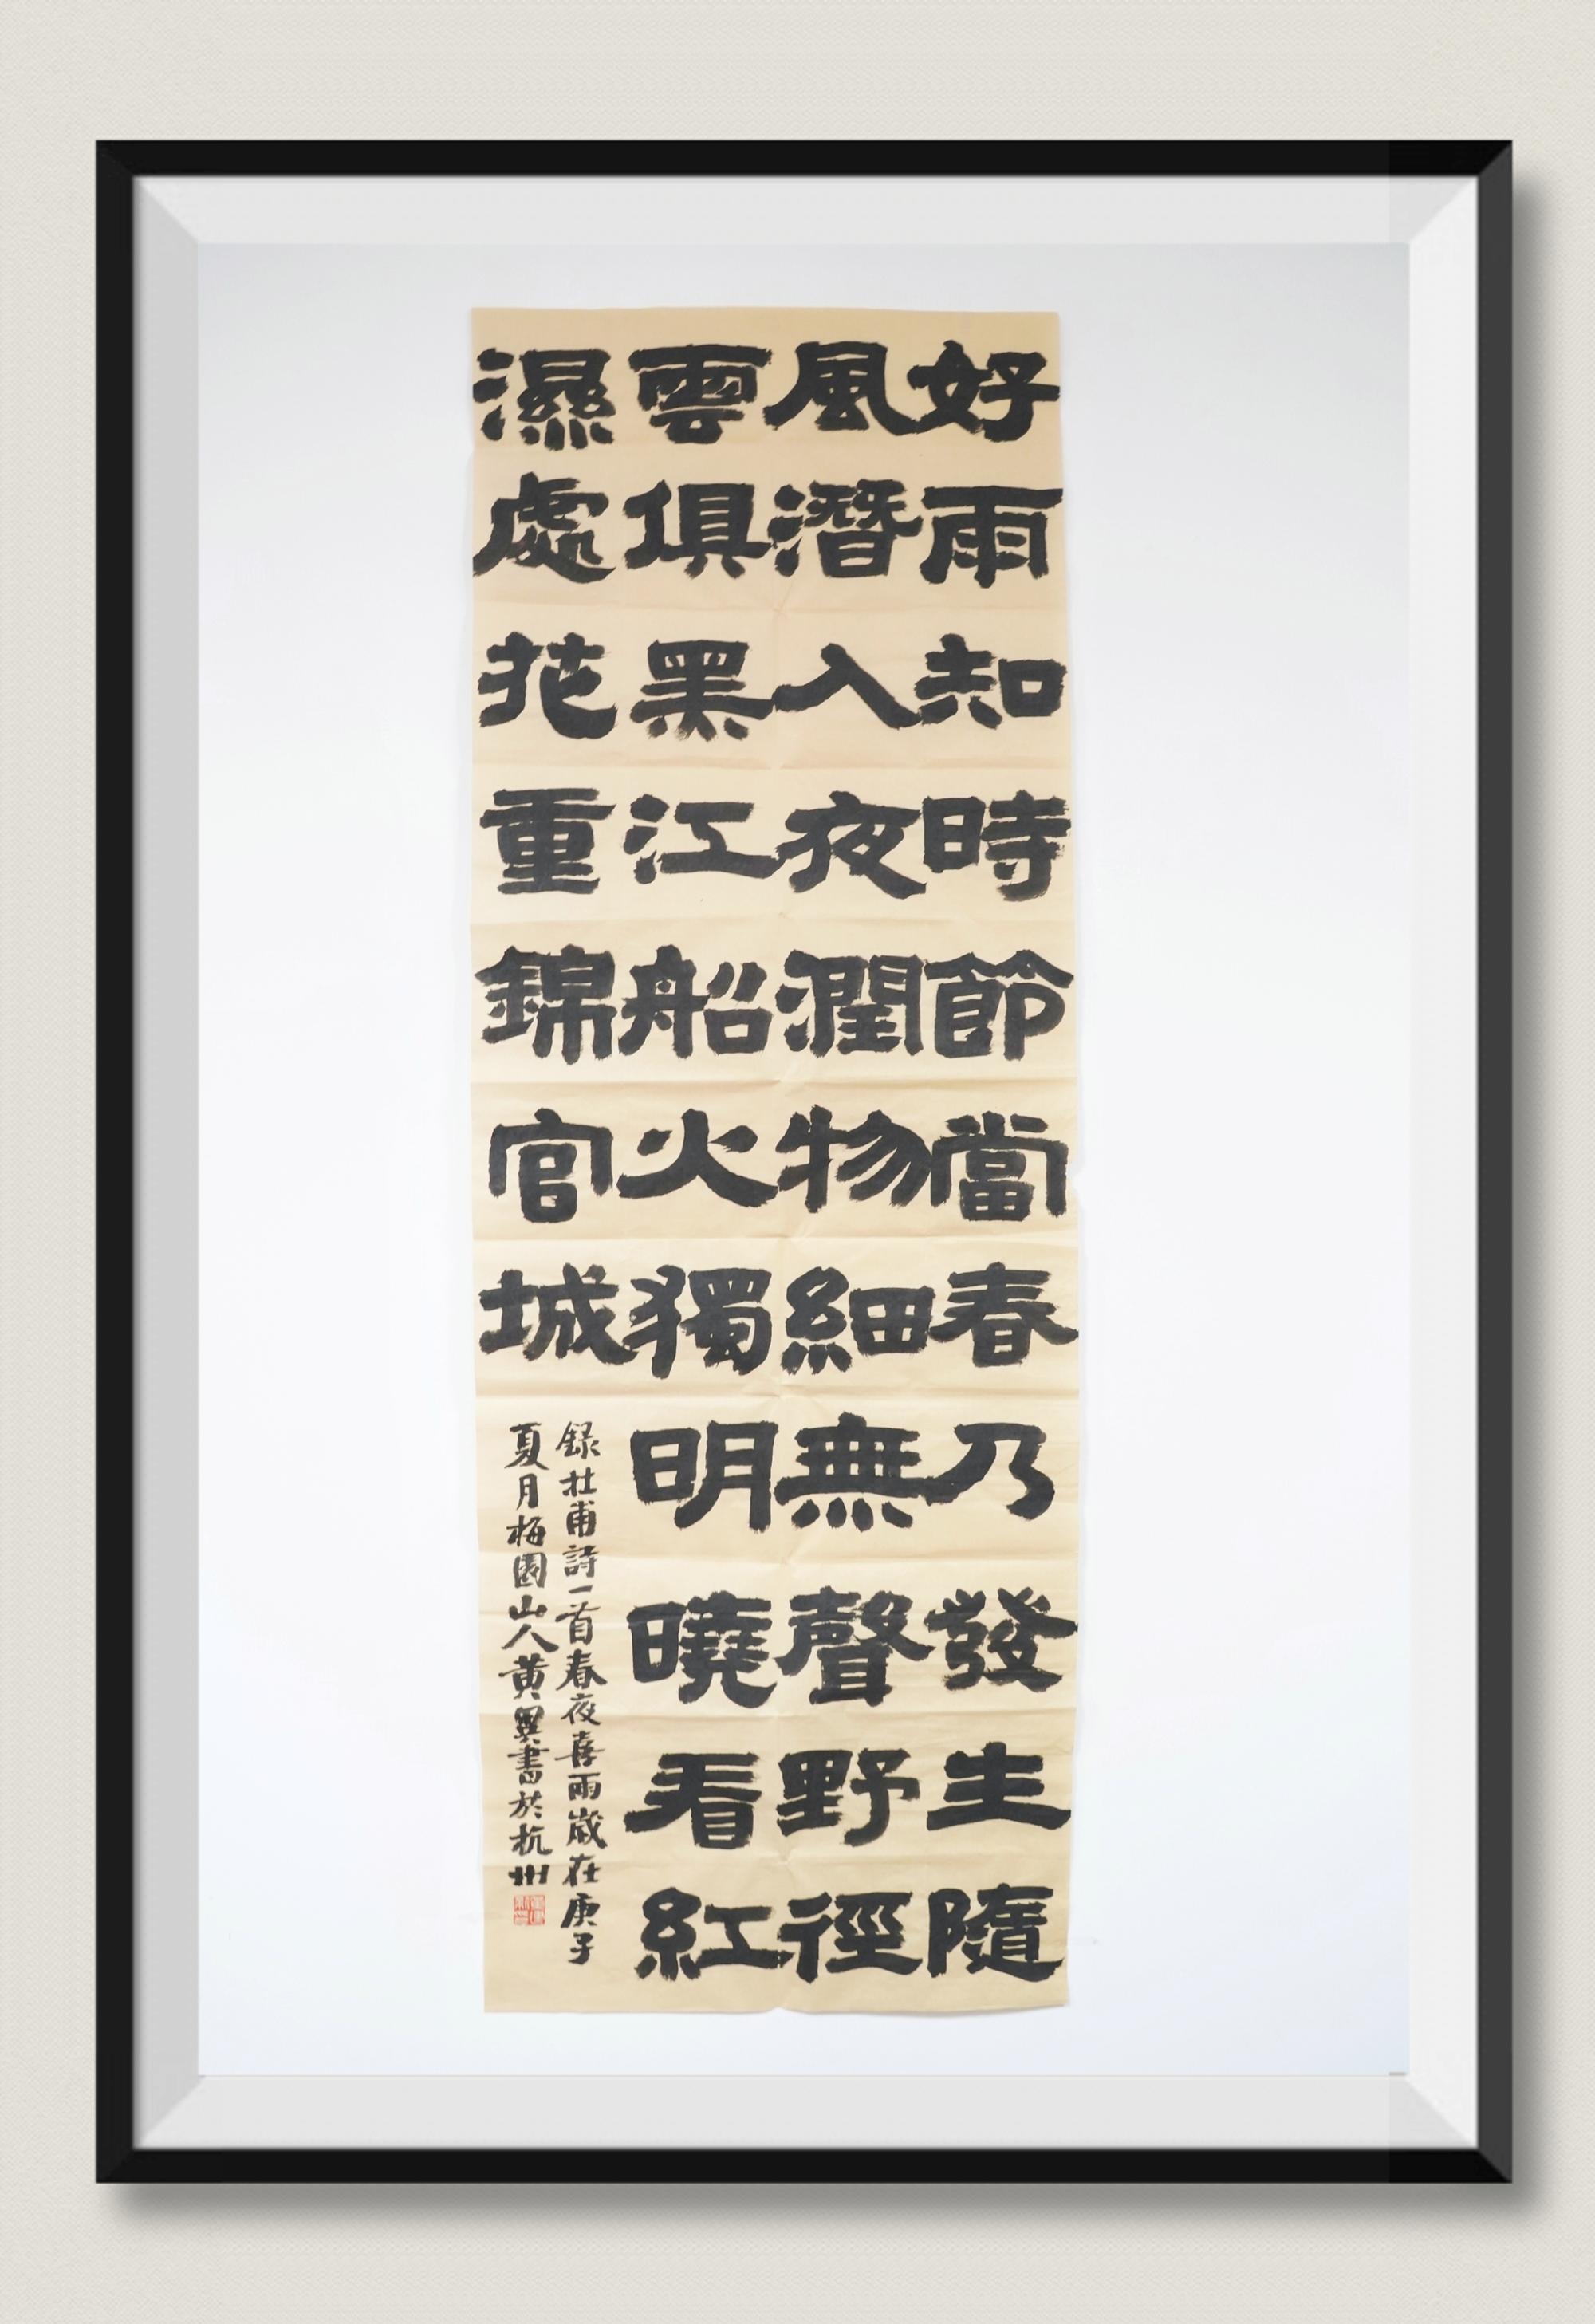 好雨知時節當春乃發生隨
風潛入夜潤物細無聲野徑
雲俱黑江船火獨明曉看紅
濕處花重錦官城
録杜甫詩一首春夜喜雨歲在庚子
夏月梅園山人黄書於杭州